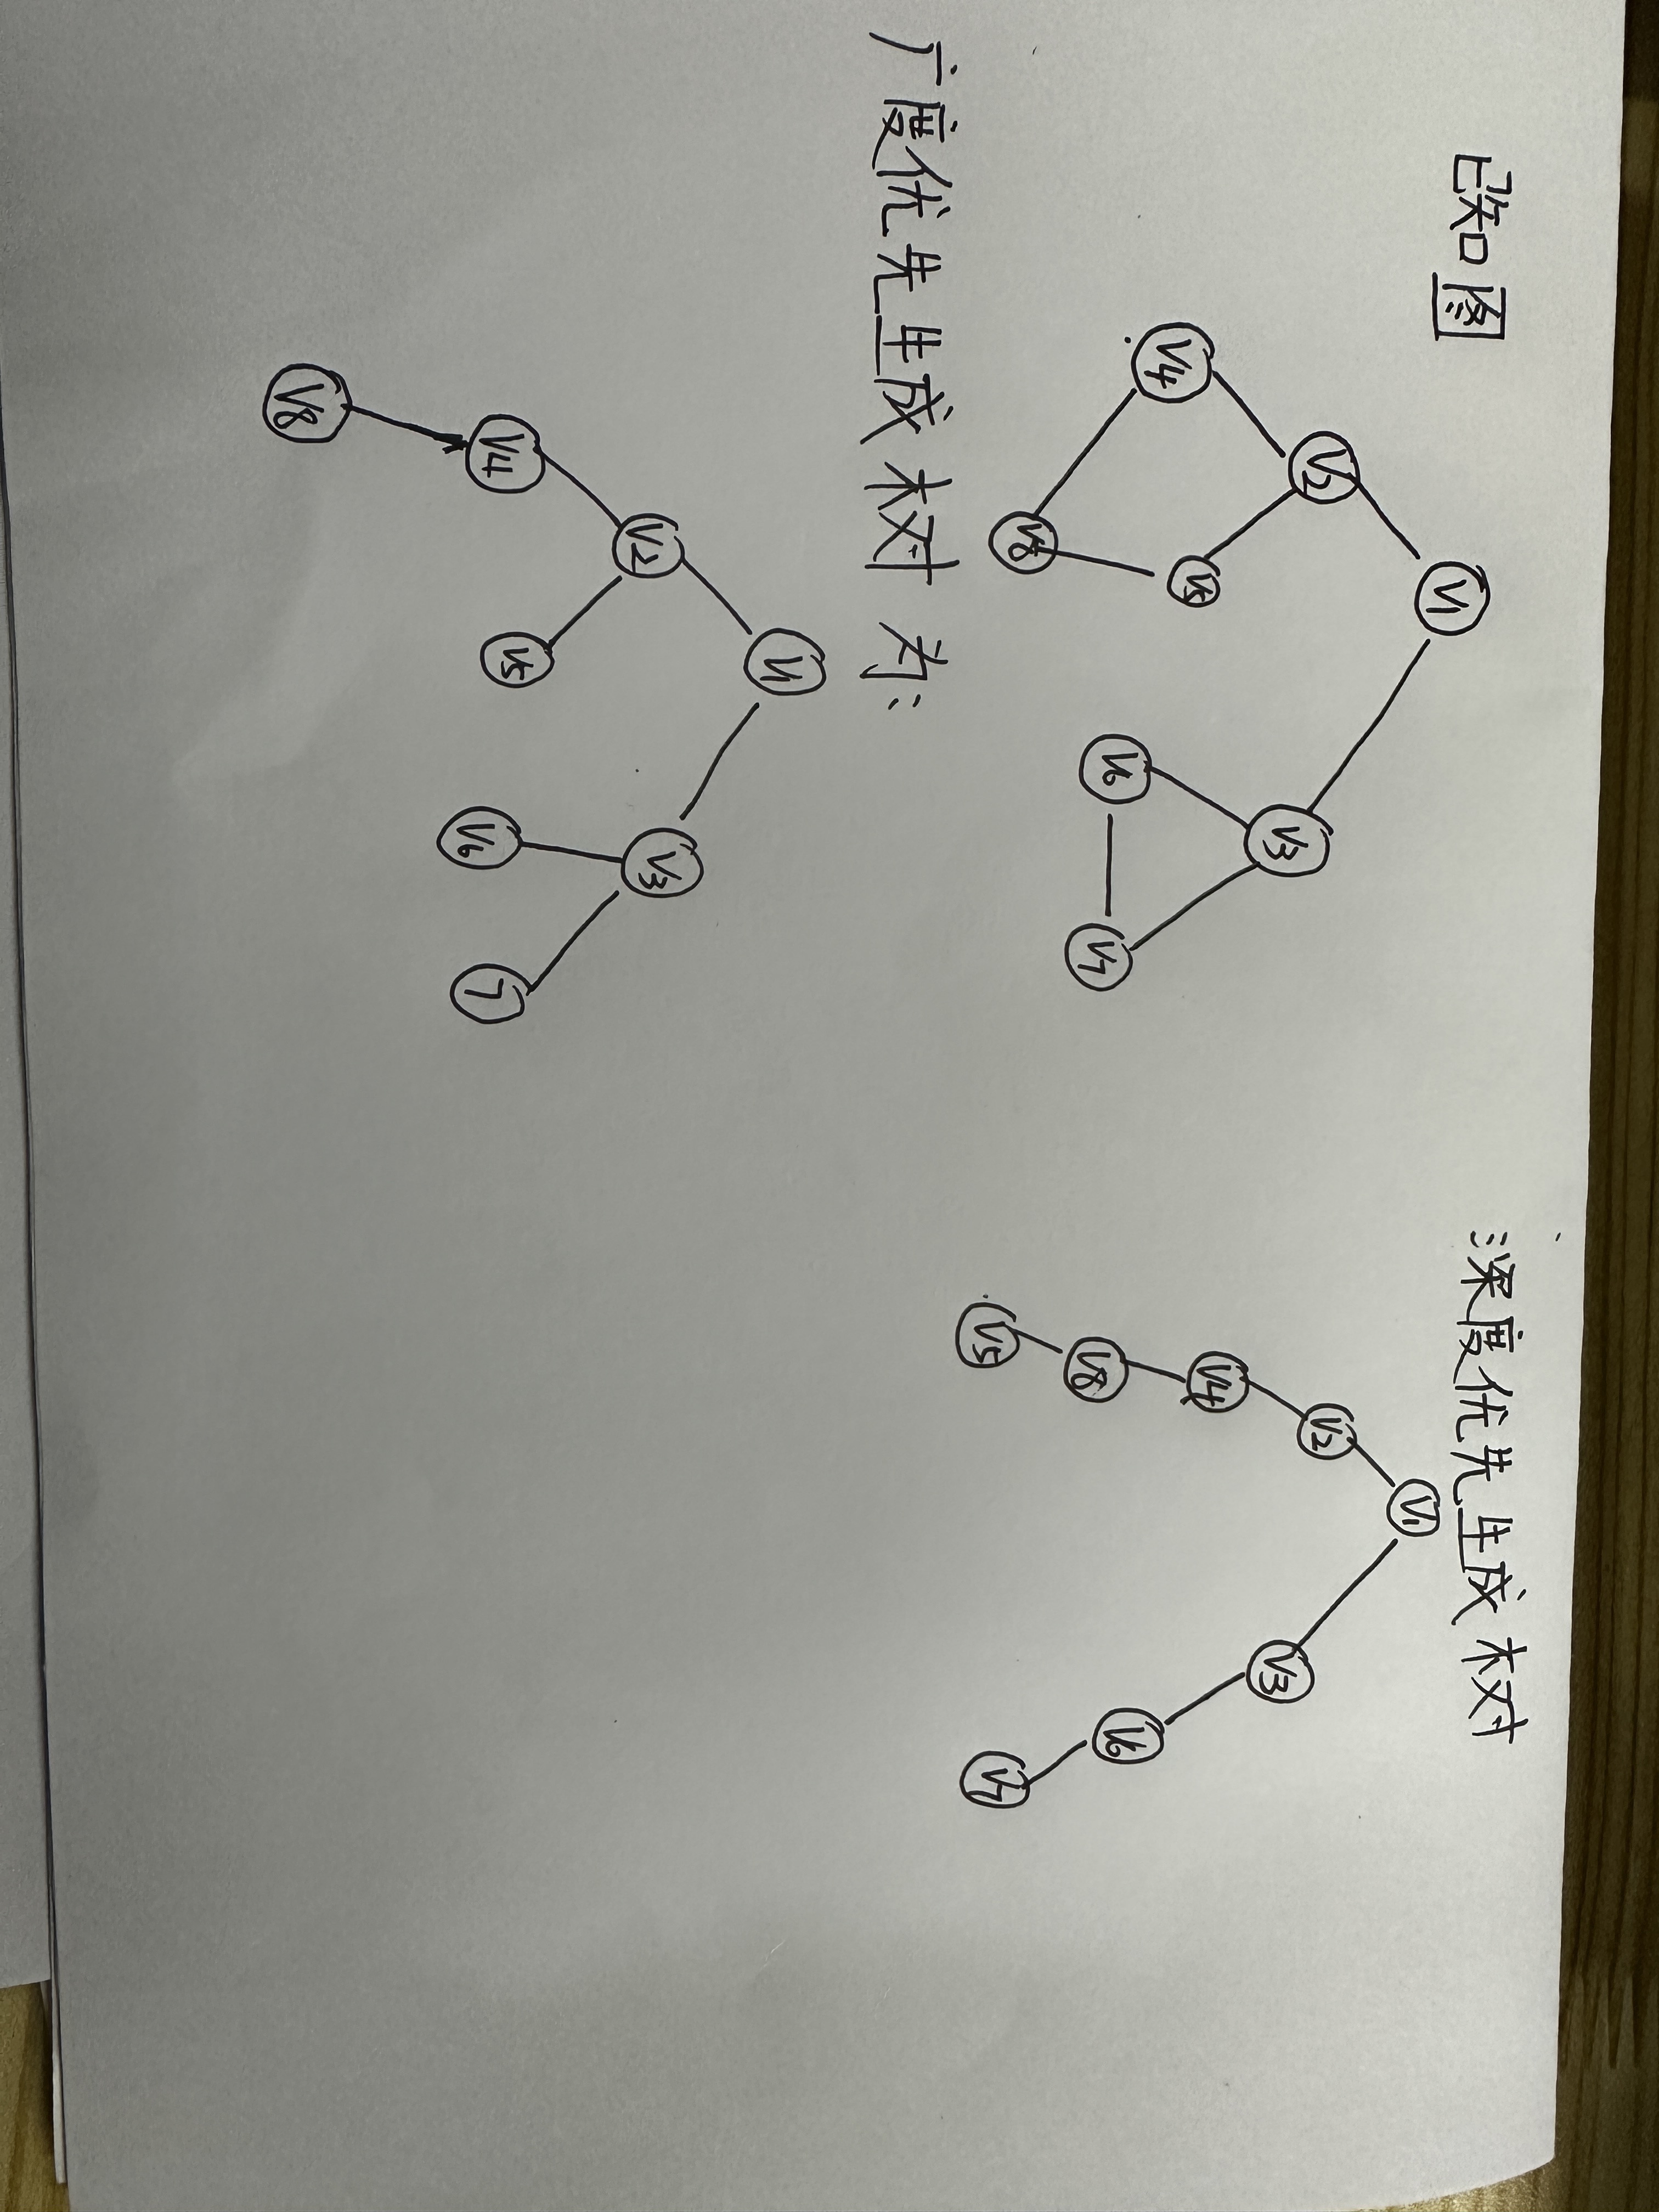 已知图
V1
V2
V3
V4
V5
V6
V7
V8
深度优先生成树
V1
V2
V3
V4
V6
V8
V5
V7
广度优先生成树为:
V1
V2
V3
V4
V5
V6
7
V8